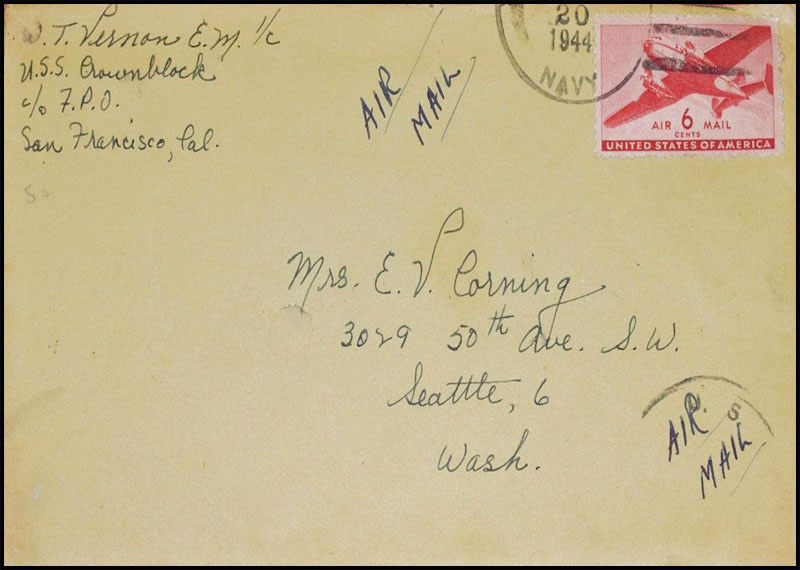 W. T. Vernon E.M. 1/c
U.S.S. Crownblock
c/o F.P.O.
San Francisco, Cal.
AIR
MAIL
20
1944
NAVY
AIR 6 MAIL
CENTS
UNITED STATES OF AMERICA
Mrs. E. V. Corning
3029 50th Ave. S.W.
Seattle, 6
Wash.
S
AIR
MAIL